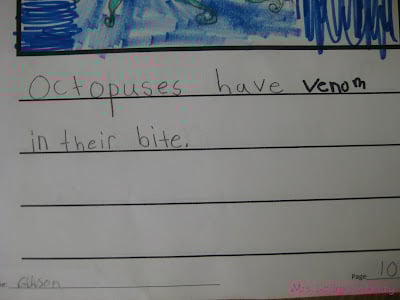 Octopuses have venom
in their bite.
Page 10
Gibson